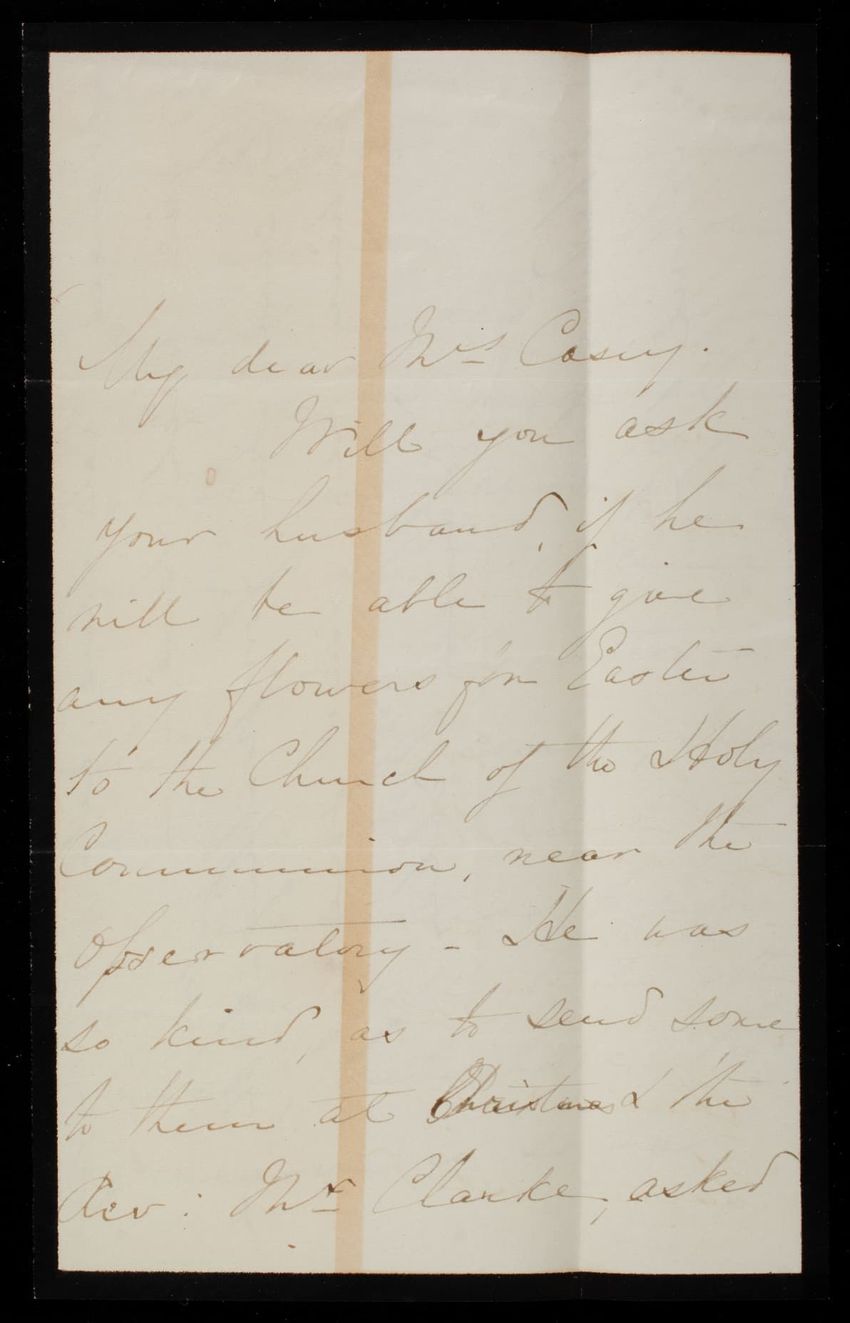 My dear Mrs Casey.
Will you ask
your husband, if he
will be able to give
any flowers for Easter
to the Church of the Holy
Communion, near the
Observatory - He was
so kind, as to send some
to them at Christmas & the
Rev: Mr Clarke, asked